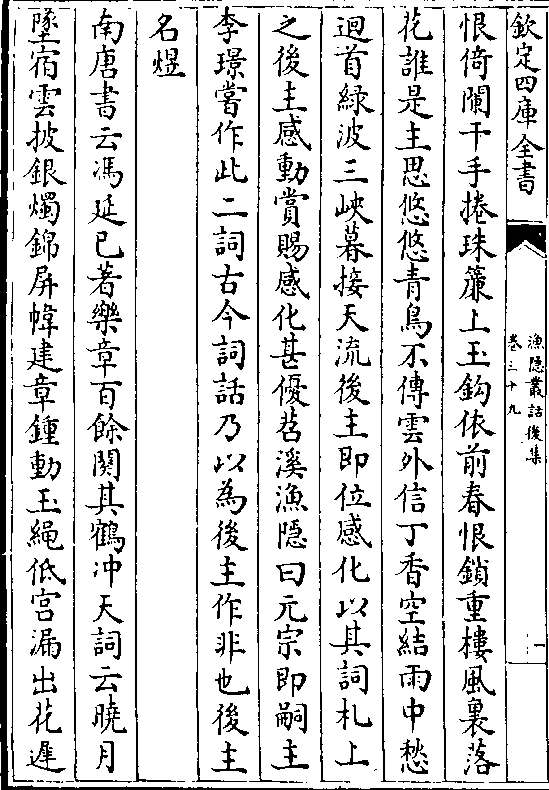 欽定四庫全書
漁隱叢話後集
卷三十九
一
恨倚闌干手捲珠簾上玉鈎依前春恨鎖重樓風裏落
花誰是主思悠悠青鳥不傳雲外信丁香空結雨中愁
迴首緑波三峽暮接天流後主即位感化以其詞札上
之後主感動賞賜感化甚優苕溪漁隱曰元宗即嗣主
李璟嘗作此二詞古今詞話乃以為後主作非也後主
名煜
南唐書云馮延已著樂章百餘闋其鶴冲天詞云曉月
墜宿雲披銀燭錦屏幃建章鍾動玉繩低宮漏出花遲